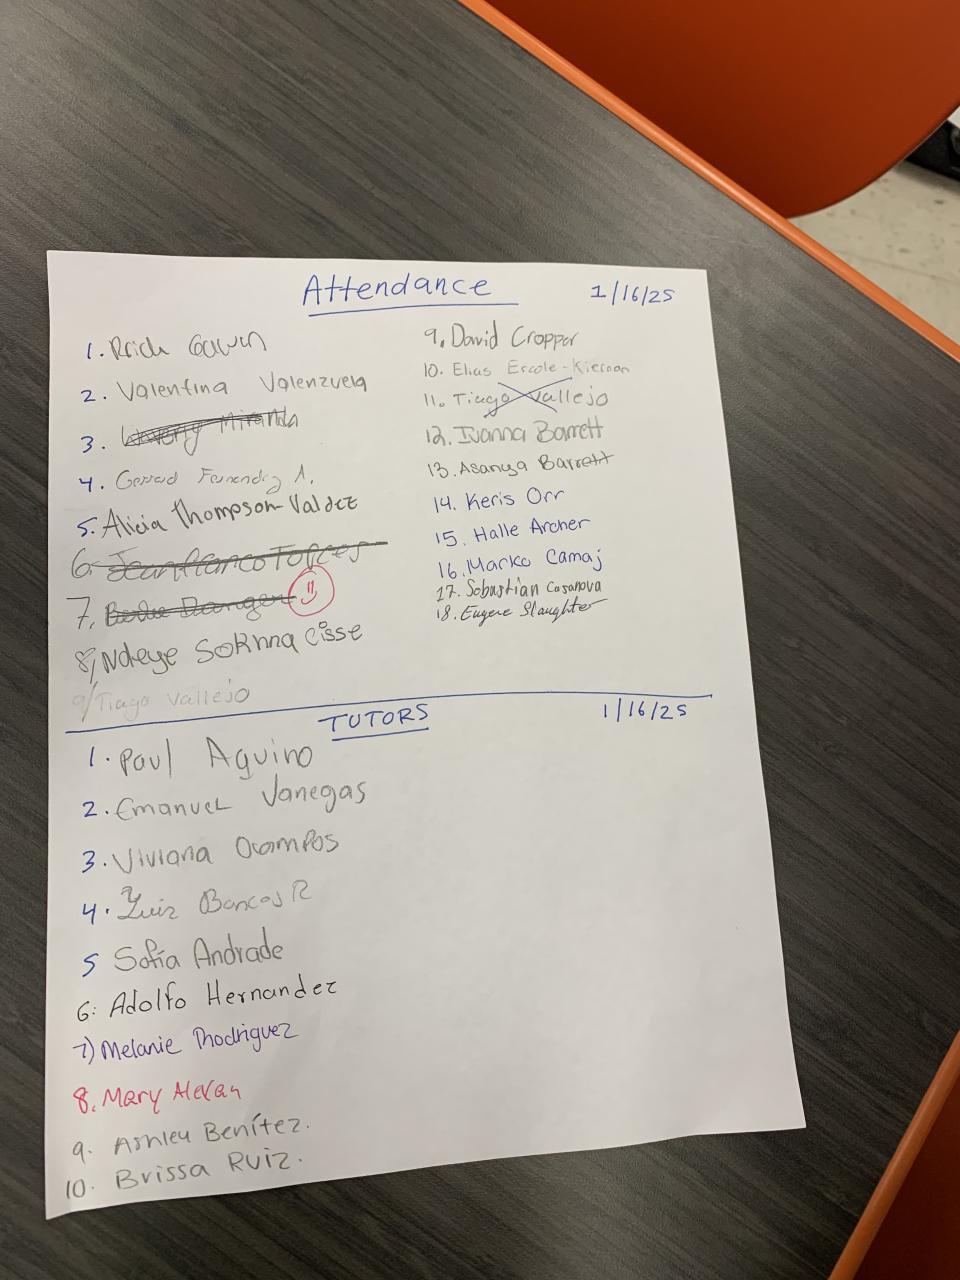 Attendance 1/16/25
1.
2. Valentina Valenzuela
3. Miranda
4. Gerrad
5. Alicia Thompson-Valdez
6. Jeanfranco Torres
7.
8, Ndeye Sokhna Cisse
9/Tiago Vallejo
9. David Cropper
10. Elias Ercole-Kiernan
11. Tiago Vallejo
12. Ivanna Barrett
13. Asanya Barrett
14. Keris Orr
15. Halle Archer
16. Marko Camaj
17. Sebastian Casanova
18. Eugene Slaughter
TUTORS 1/16/25
1. Paul Aquino
2. Emanuel Vanegas
3. Viviana Ocampos
4. Luiz R
5 Sofía Andrade
6: Adolfo Hernandez
7) Melanie Rhodriguez
8. Mary
9. Ashley Benítez.
10. Brissa Ruiz.